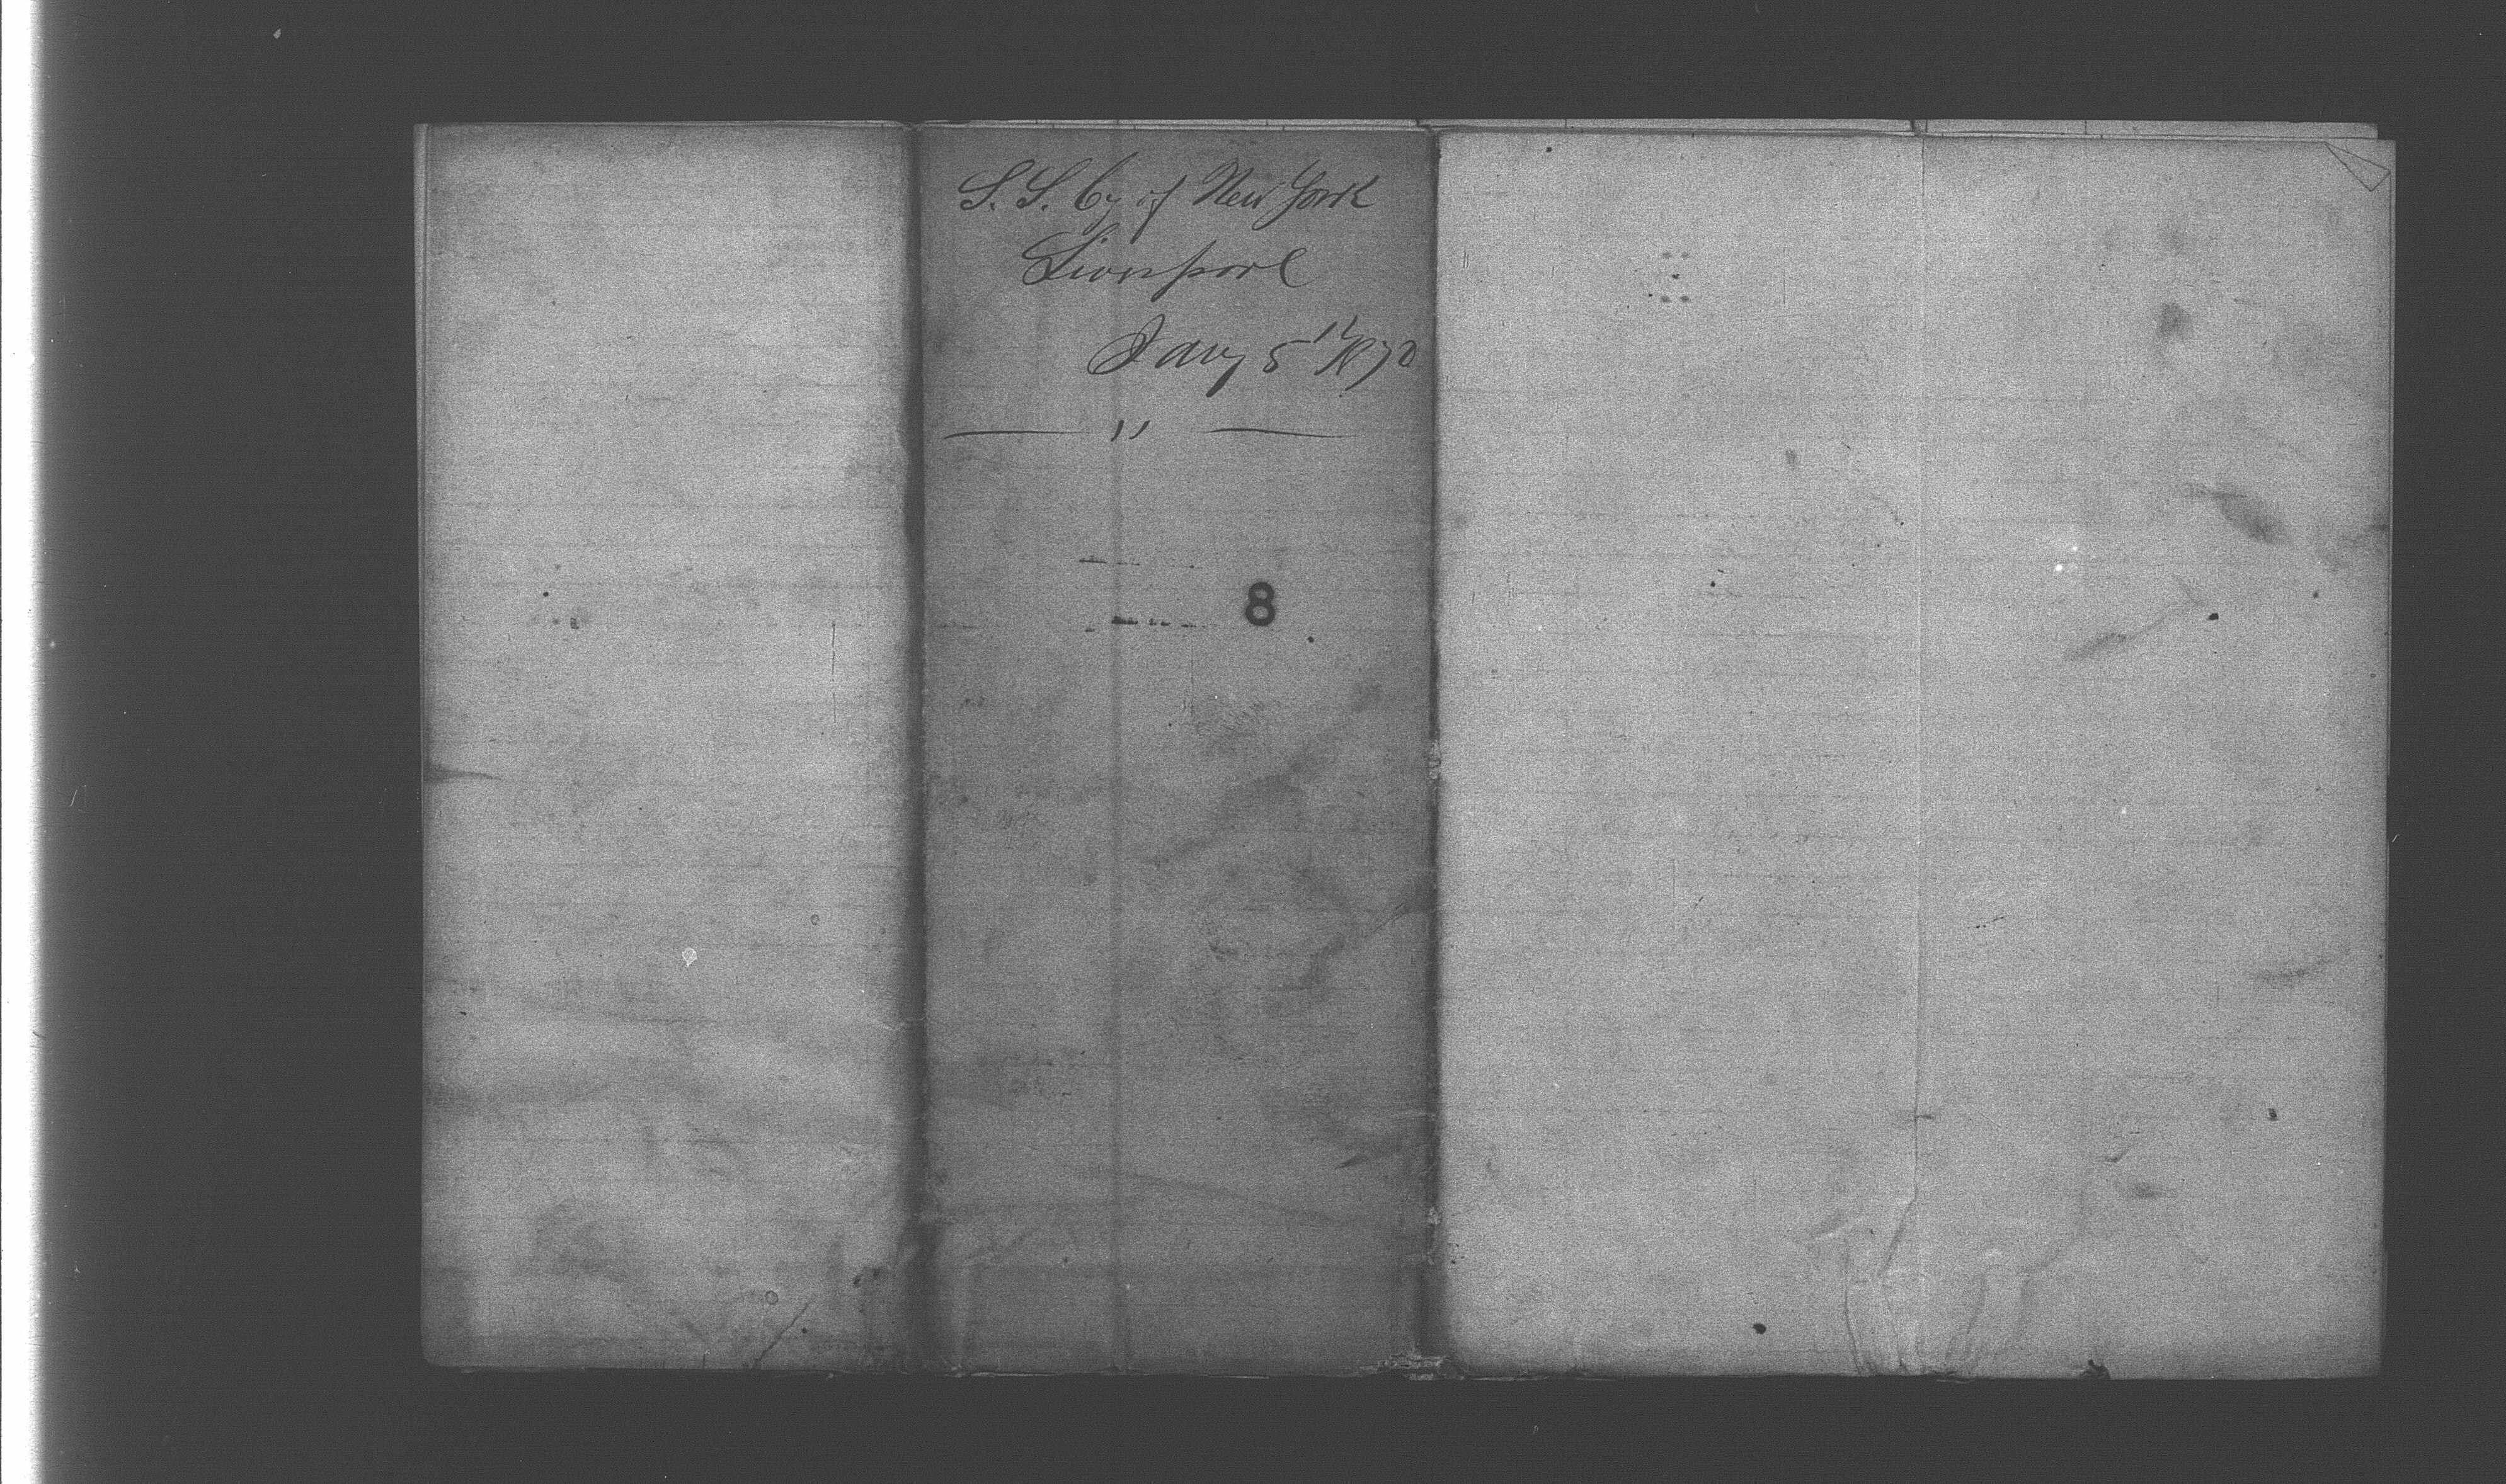 S. S. Cy of New York
Liverpool
Jany 5th 1870
8